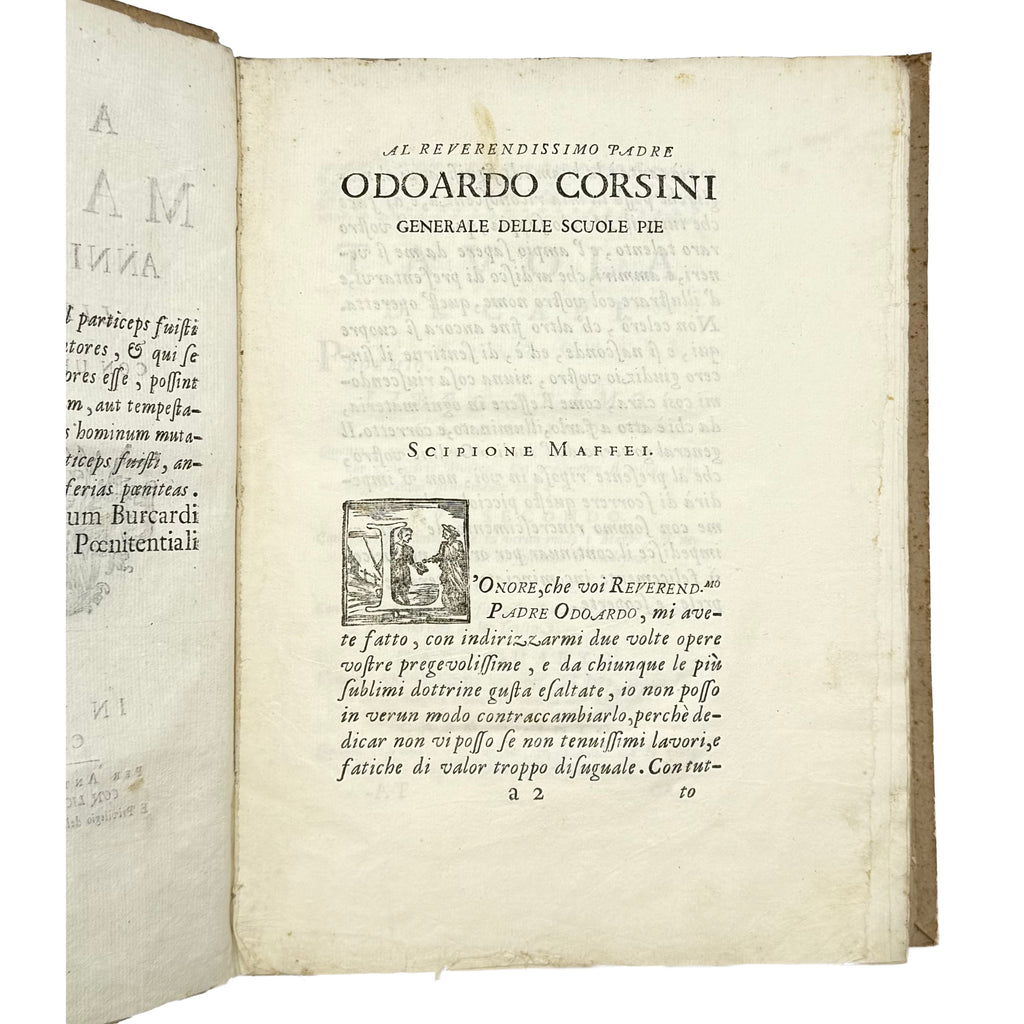 particeps fuisti
tores, & qui se
res esse, possint
m, aut tempesta-
s hominum muta-
ticeps fuisti, an-
ferias pœniteas.
um Burcardi
Pœnitentiali
AL REVERENDISSIMO PADRE
ODOARDO CORSINI
GENERALE DELLE SCUOLE PIE
SCIPIONE MAFFEI.
L'ONORE, che voi REVEREND.MO
PADRE ODOARDO, mi ave-
te fatto, con indirizzarmi due volte opere
vostre pregevolissime, e da chiunque le più
sublimi dottrine gusta esaltate, io non posso
in verun modo contraccambiarlo, perchè de-
dicar non vi posso se non tenuissimi lavori, e
fatiche di valor troppo disuguale. Con tut-
a 2 to